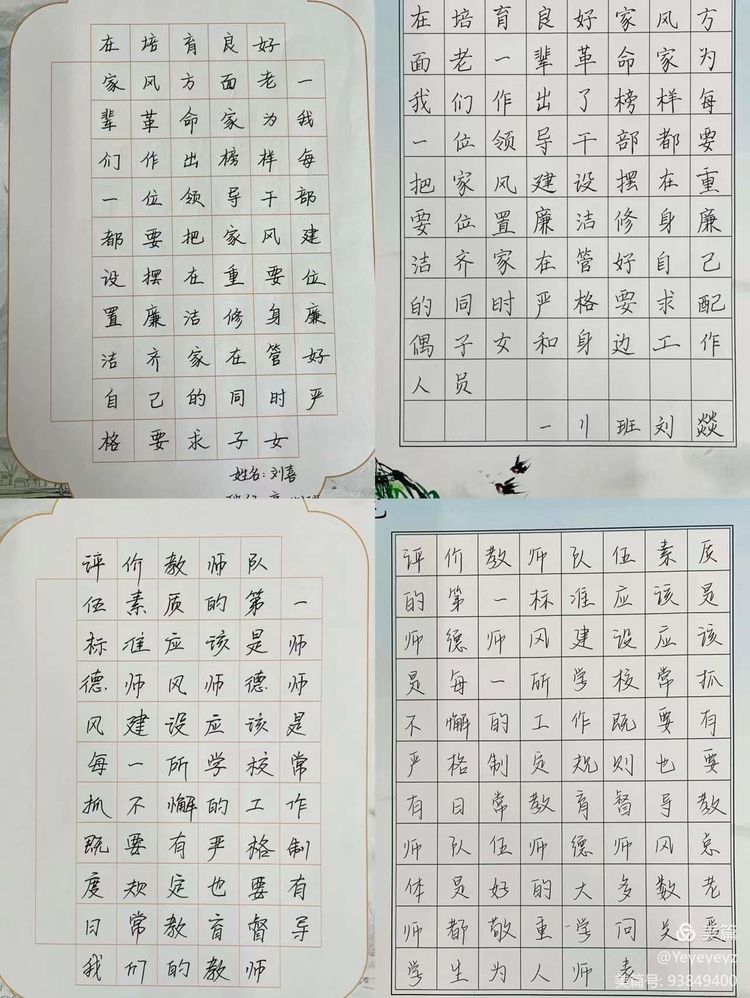 在培育良好
家风方面老一
辈革命家为我
们作出榜样每
一位领导干部
都要把家风建
设摆在重要位
置廉洁修身廉
洁齐家在管好
自己的同时严
格要求子女
姓名:刘喜
在培育良好家风方
面老一辈革命家为
我们作出了榜样每
一位领导干部都要
把家风建设摆在重
要位置廉洁修身廉
洁齐家在管好自己
的同时严格要求配
偶子女和身边工作
人员
一11班刘燚
评价教师队
伍素质的第一
标准应该是师
德师风师德师
风建设应该是
每一所学校常
抓不懈的工作
既要有严格制
度规定也要有
日常教育督导
我们的教师
评价教师队伍素质
的第一标准应该是
师德师风建设应该
是每一所学校常抓
不懈的工作既要有
严格制定规则也要
有日常教育督导教
师队伍师德师风总
体是好的大多数老
师都敬重学问关爱
学生为人师表
美篇
@Yeyeyeyz
美篇号:93849400